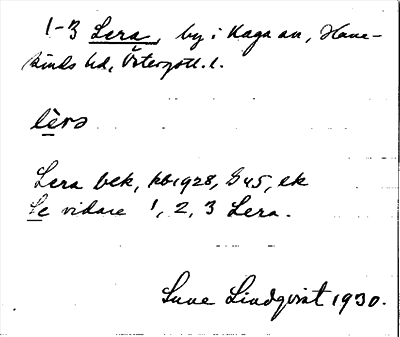 1-3 Lera, by i Kaga sn, Hane-
kinds hd, Östergötl. l.
lèrɔ
Lera bek, kb 1928, G45, ek
Se vidare 1, 2, 3 Lera.
Sune Lindqvist 1930.